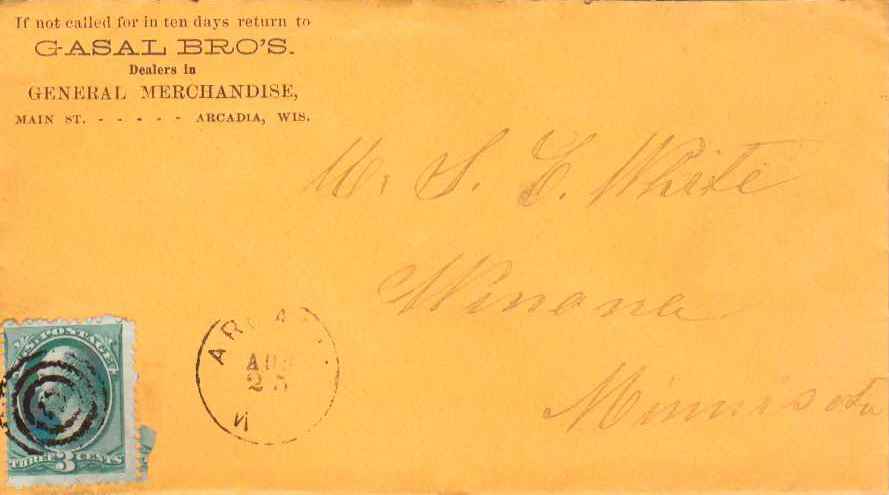 If not called for in ten days return to
GASAL BRO'S.
Dealers in
GENERAL MERCHANDISE,
MAIN ST. - - - - - ARCADIA, WIS.
Mr. S. L. White
Winona
Minnisota
U.S. POSTAGE
THREE 3 CENTS
AUG
25